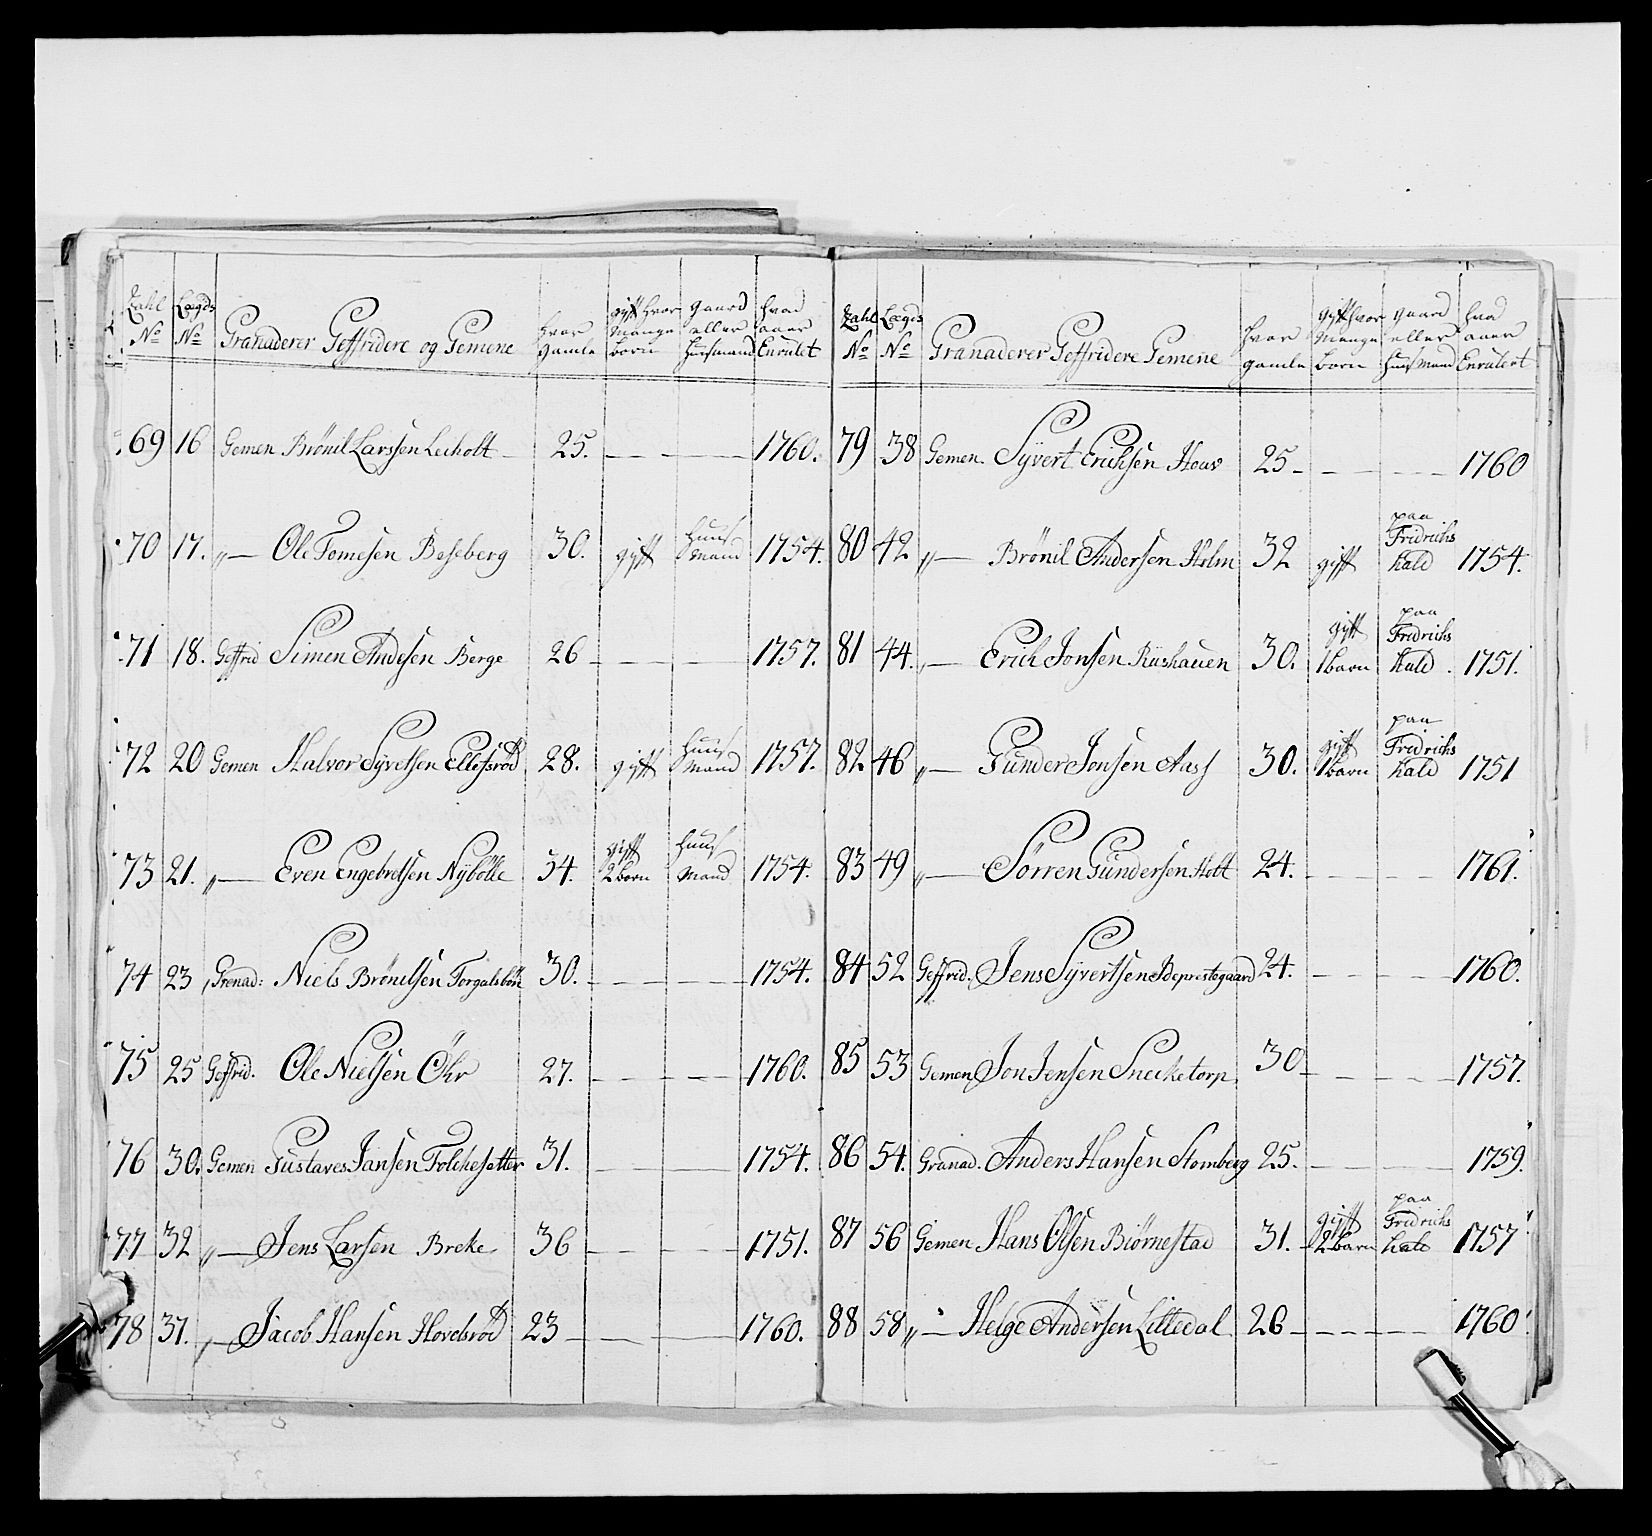 Zahl No Lægds No Granaderer Geffridere og Gemene hvor Gamle gift hvor Mange born gaard eller huusmand hvad aaer Enrulet
69 16 Gemen Brönil Larssen Lecholt 25. 1760.
70 17. „— Ole Tomesen Boseberg 30. gift Huus Mand 1754.
71 18. Geffrid Simen Andesen Berge 26 1757.
72 20 Gemen Halvor Syvetsen Ellefsröd 28. gift Huus Mand 1757.
73 21. „— Even Engebretsen Nybölle 34. gift 2 born Huus Mand 1754.
74 23 Grenad: Niels Brönilsen 30. 1754.
75 25 Geffrid. Ole Nielsen Öhr 27. 1760.
76 30. Gemen Gustaves Jansen Folckesetter 31. 1754.
77 32 „— Jens Larsen Breke 36 1751.
78 37. „— Jacob Hansen Hovelsröd 23 1760.
Zahl No Lægds No Granaderer Geffridere Gemene hvor gamle gift hvor Mange born gaard eller huus Mand hvad aaer Enrulert
79 38 Gemen Syvert Erichsen Houv 25 1760
80 42 „— Brönil Andersen Holm 32 gift paa Fridrichs hald 1754.
81 44. „— Erich Jonsen Riishauen 30. gift 1 barn paa Fridrichs hald 1751.
82 46 „— Gunder Jonsen Aass 30. gift 1 barn paa Fredrichs hald 1751
83 49 „— Sörren Gundersen Holt 24. 1761.
84 52 Geffrid. Jens Syvertsen Ideprestegaard 24. 1760.
85 53 Gemen Jon Jensen Sneeketorp 30 1757.
86 54. Granad. Anders Hansen Stomberg 25. 1759.
87 56 Gemen Hans Olsen Biörnestad 31. gift 2 barn paa Fridrichs hald 1757
88 58 „— Helge Andersen Littedal 26 1760.